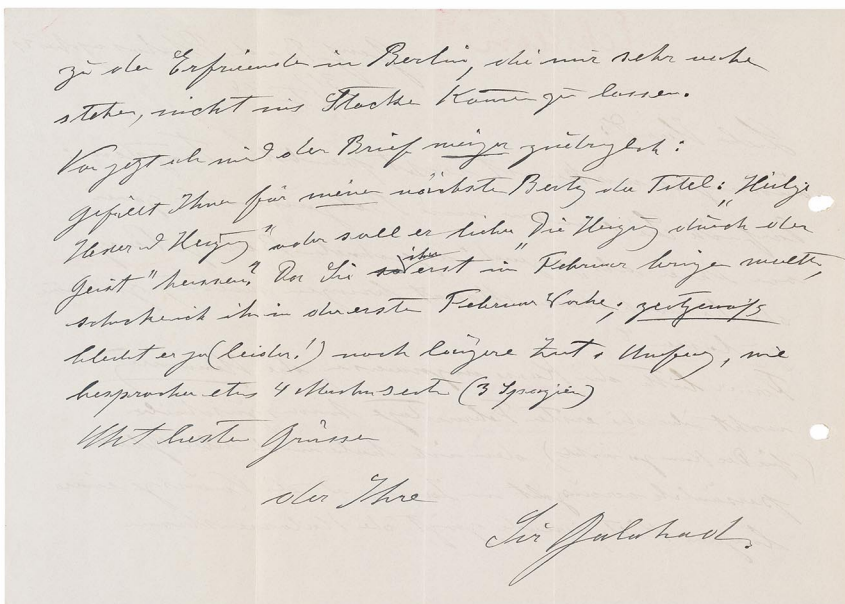 zu den Erfreunden in Berlin, die mir sehr nahe
stehen, nicht ins Stocken kommen zu lassen.
Vor jetzt ich mit der Brief :
gefällt Ihnen für meinen nächsten der Titel: "Heilige
" oder soll er lieber "Die Heizung durch den
Geist" heissen? Da Sie ihn erst in Februar bringen wollten,
schicke ich ihn in der ersten Februar Woche; zeitgemäss
bleibt er ja (leider!) noch längere Zeit. Umfang, wie
besprochen etwa 4 (3 )
Mit besten Grüssen
der Ihre
Sir Galahad.